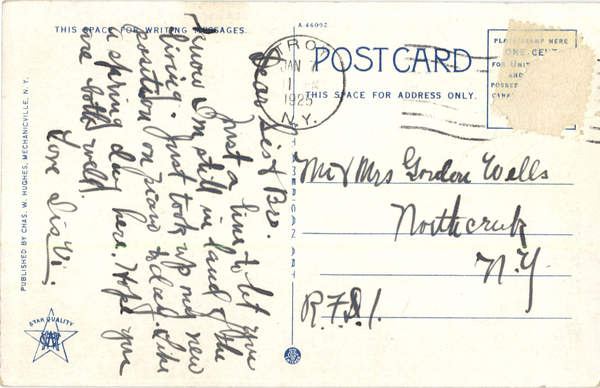 THIS SPACE FOR WRITING MESSAGES.
A-46092
POSTCARD
THIS SPACE FOR ADDRESS ONLY.
PLACE STAMP HERE
ONE CENT
FOR UNIT
AND
POSSES
TROY
JAN 7
1925
N.Y.
Dear Sis & Bro.
Just a line to let you
know I'm still in land of the
living. Just took up my new
position on piano today. Like
a spring day here. Hope you
are both well.
Love Sis Vi.
Mr & Mrs Gordon Wells
Northcreek
N.Y.
R.F.D.1.
PUBLISHED BY CHAS. W. HUGHES, MECHANICVILLE, N.Y.
STAR QUALITY